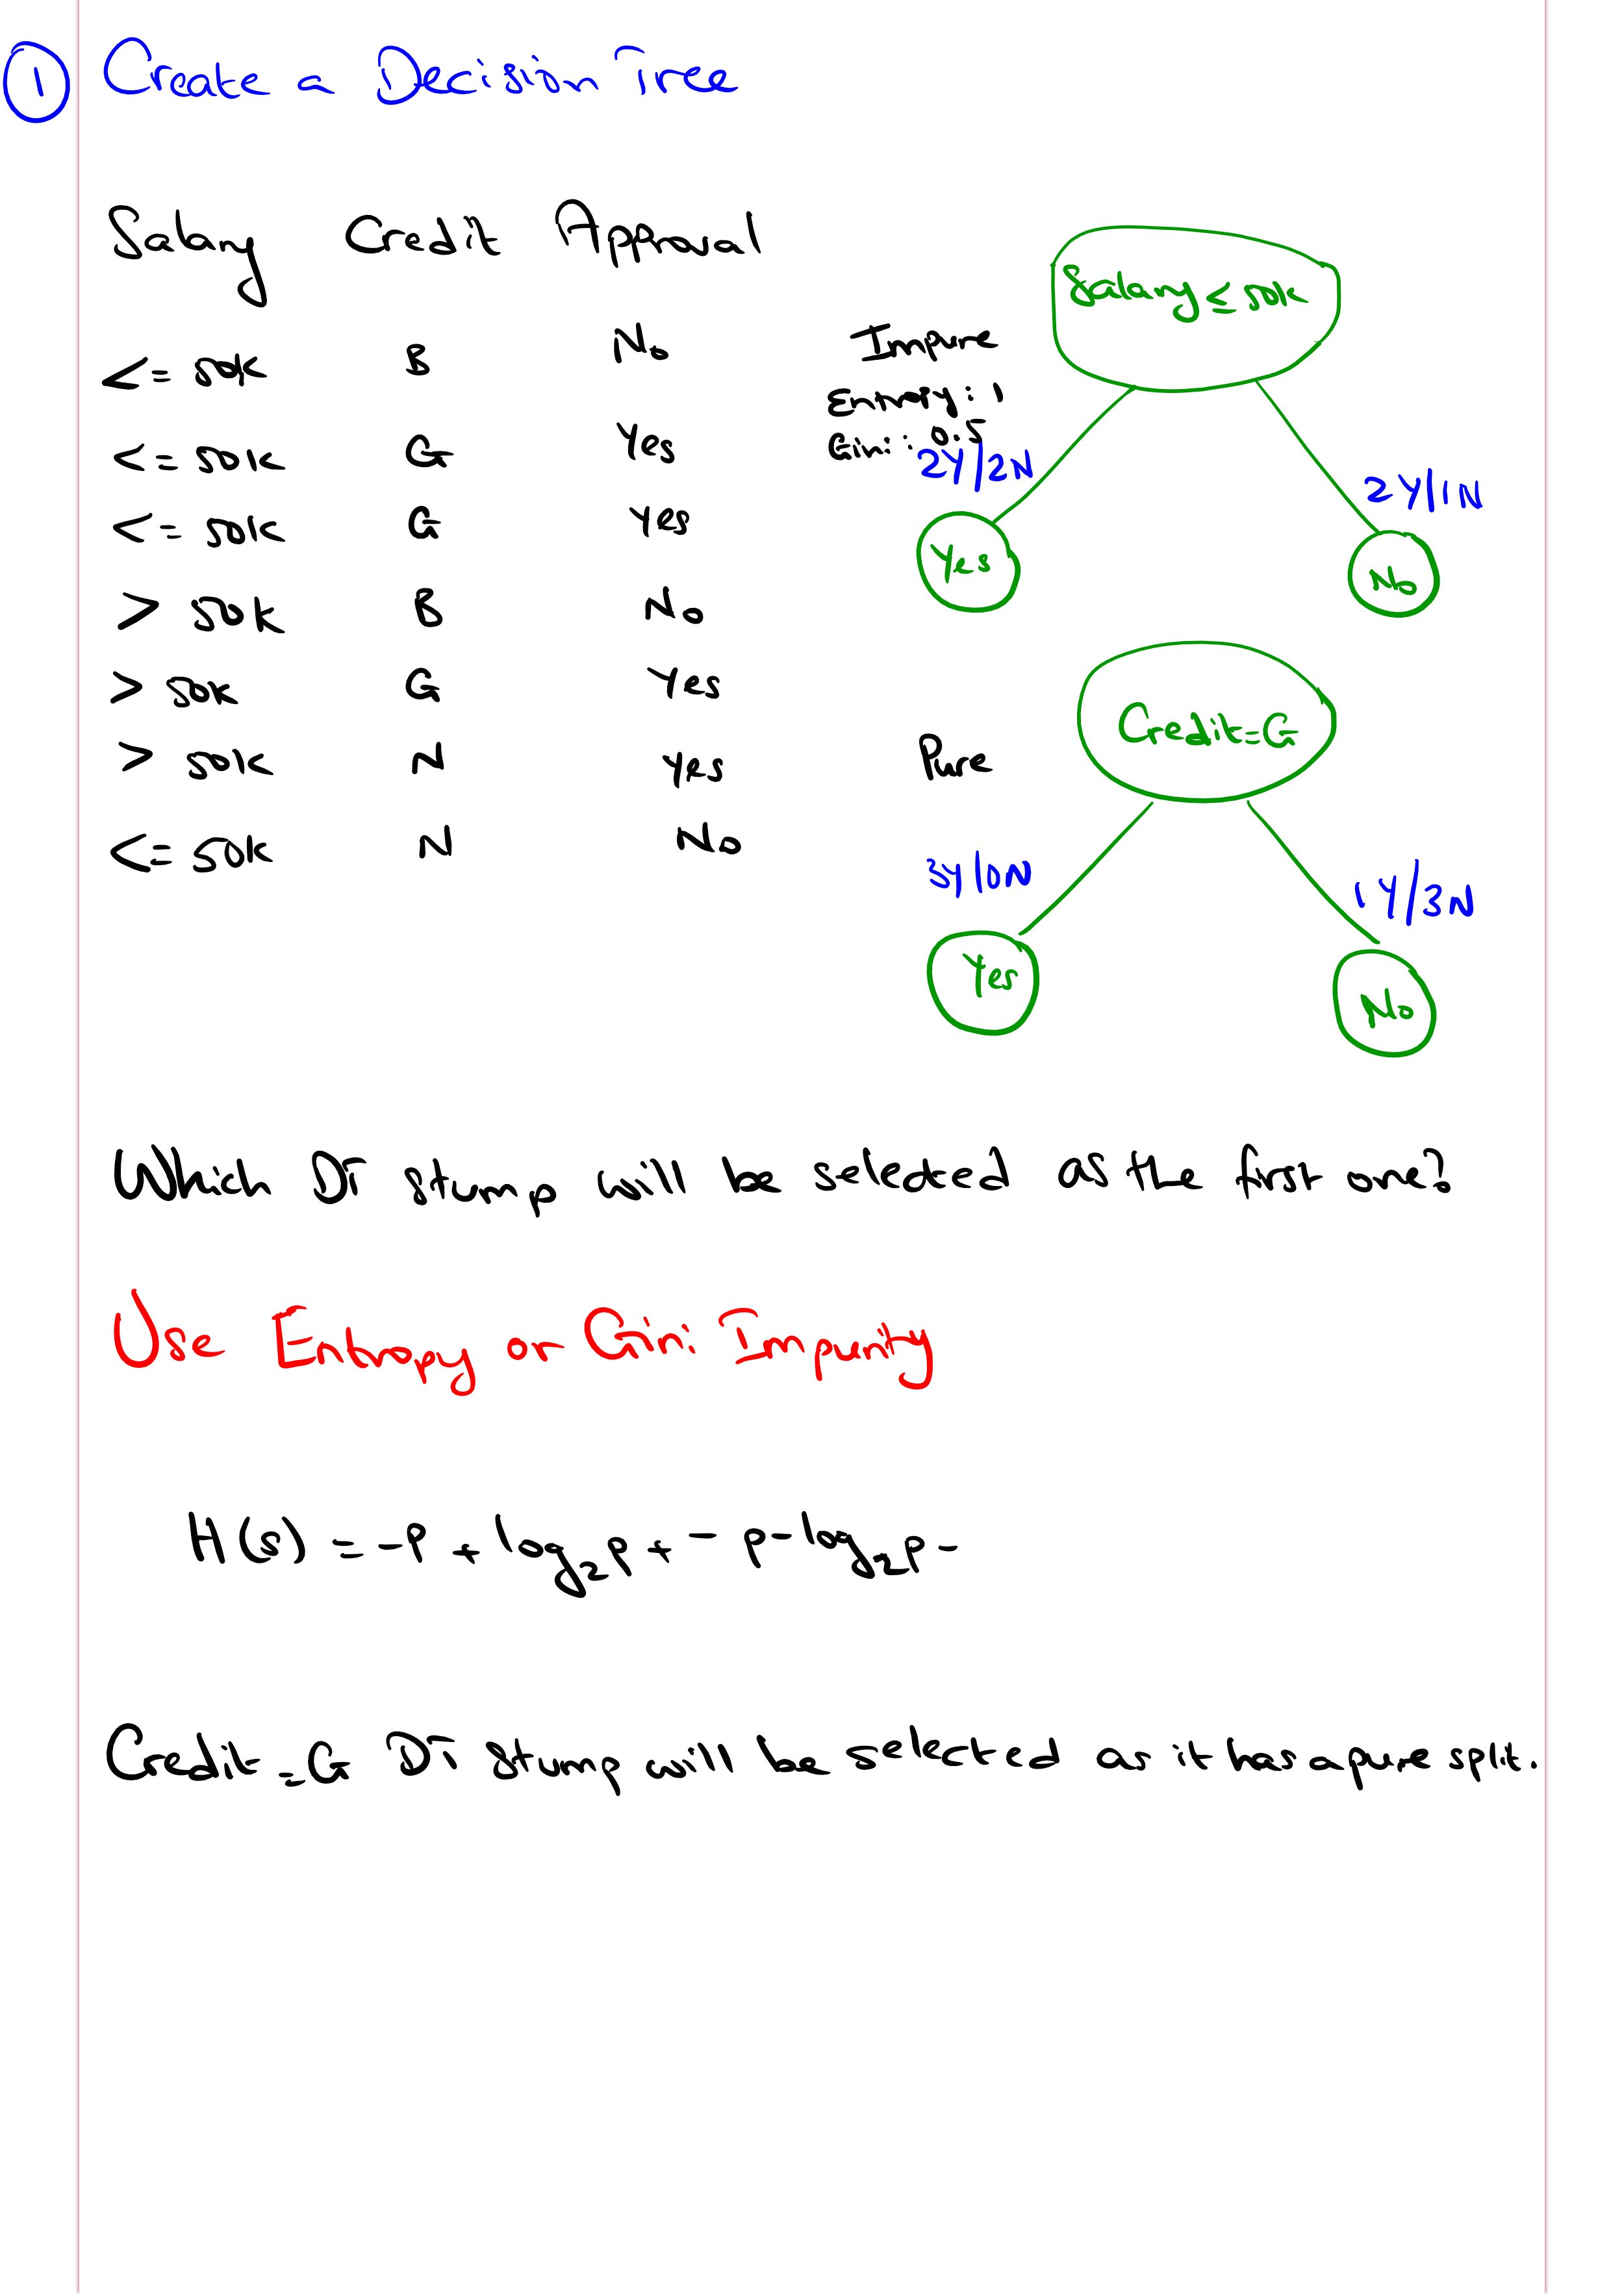 1 Create a Decision Tree
Salary Credit Approval
<= 50k B No
<= 50k G Yes
<= 50k G Yes
> 50k B No
> 50k G Yes
> 50k N Yes
<= 50k N No
Salary ≤ 50k
Impure
Entropy: 1
Gini: 0.5
2Y/2N
2Y/1N
Yes
No
Credit=G
Pure
3Y/0N
1Y/3N
Yes
No
Which DT stump will be selected as the first one?
Use Entropy or Gini Impurity
H(s) = -P+ log₂P+ - p- log₂p-
Credit=G DT stump will be selected as it has a pure split.